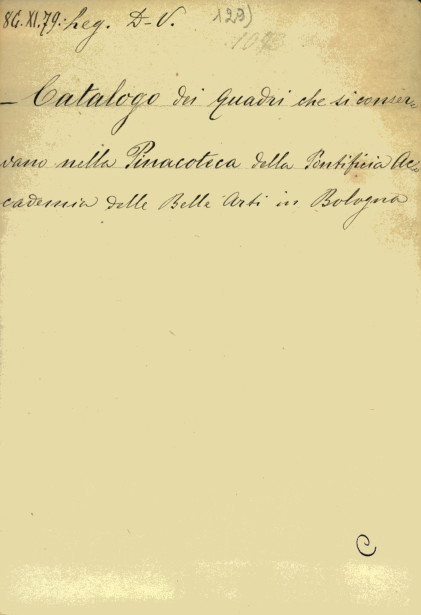 86.XI.79. Leg. D-V. 129)
– Catalogo dei quadri che si conser
vano nella Pinacoteca della Pontificia Ac
cademia delle Belle Arti in Bologna
C